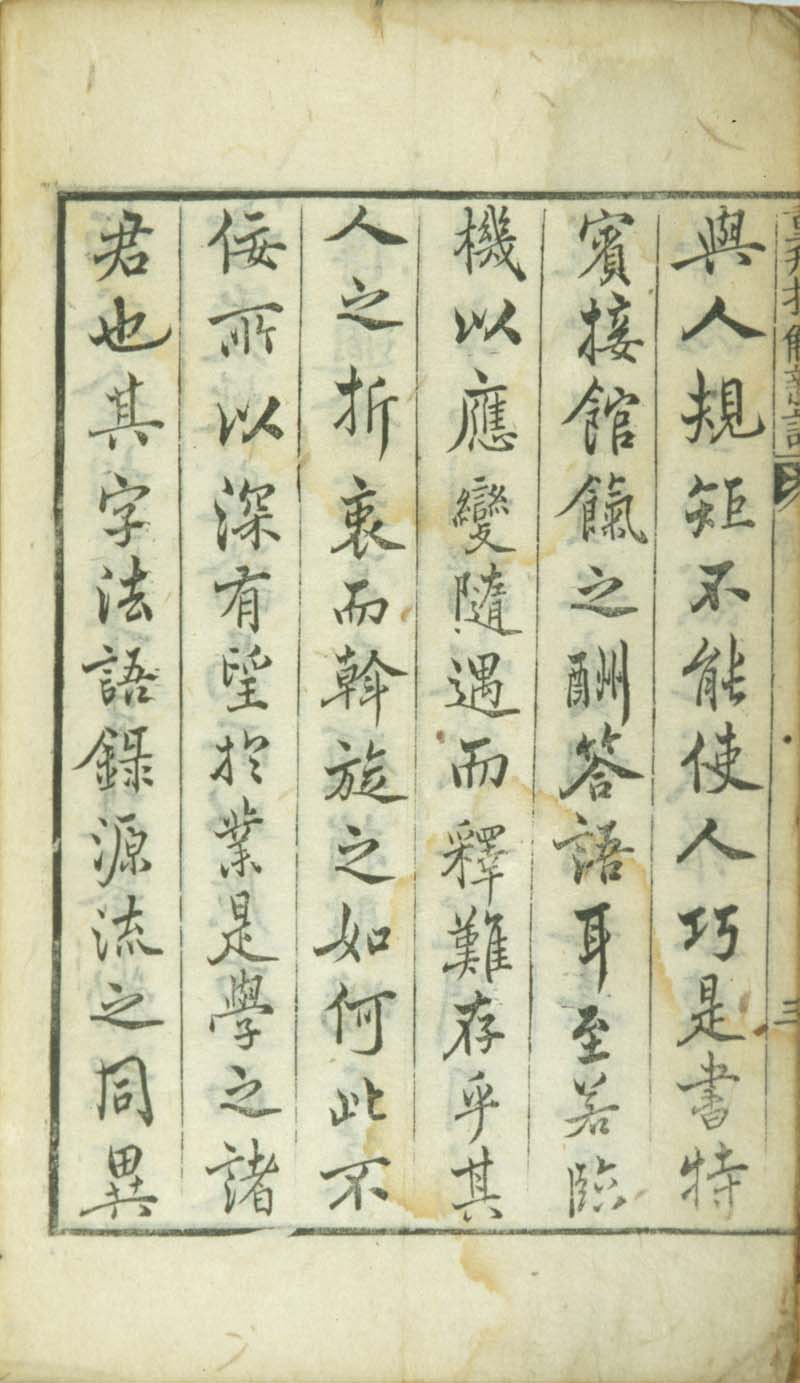 重刊捷解新語
三
與人規矩不能使人巧是書特
賓接館餼之酬答語耳至若臨
機以應變隨遇而釋難存乎其
人之折衷而斡旋之如何此不
佞所以深有望於業是學之諸
君也其字法語錄源流之同異